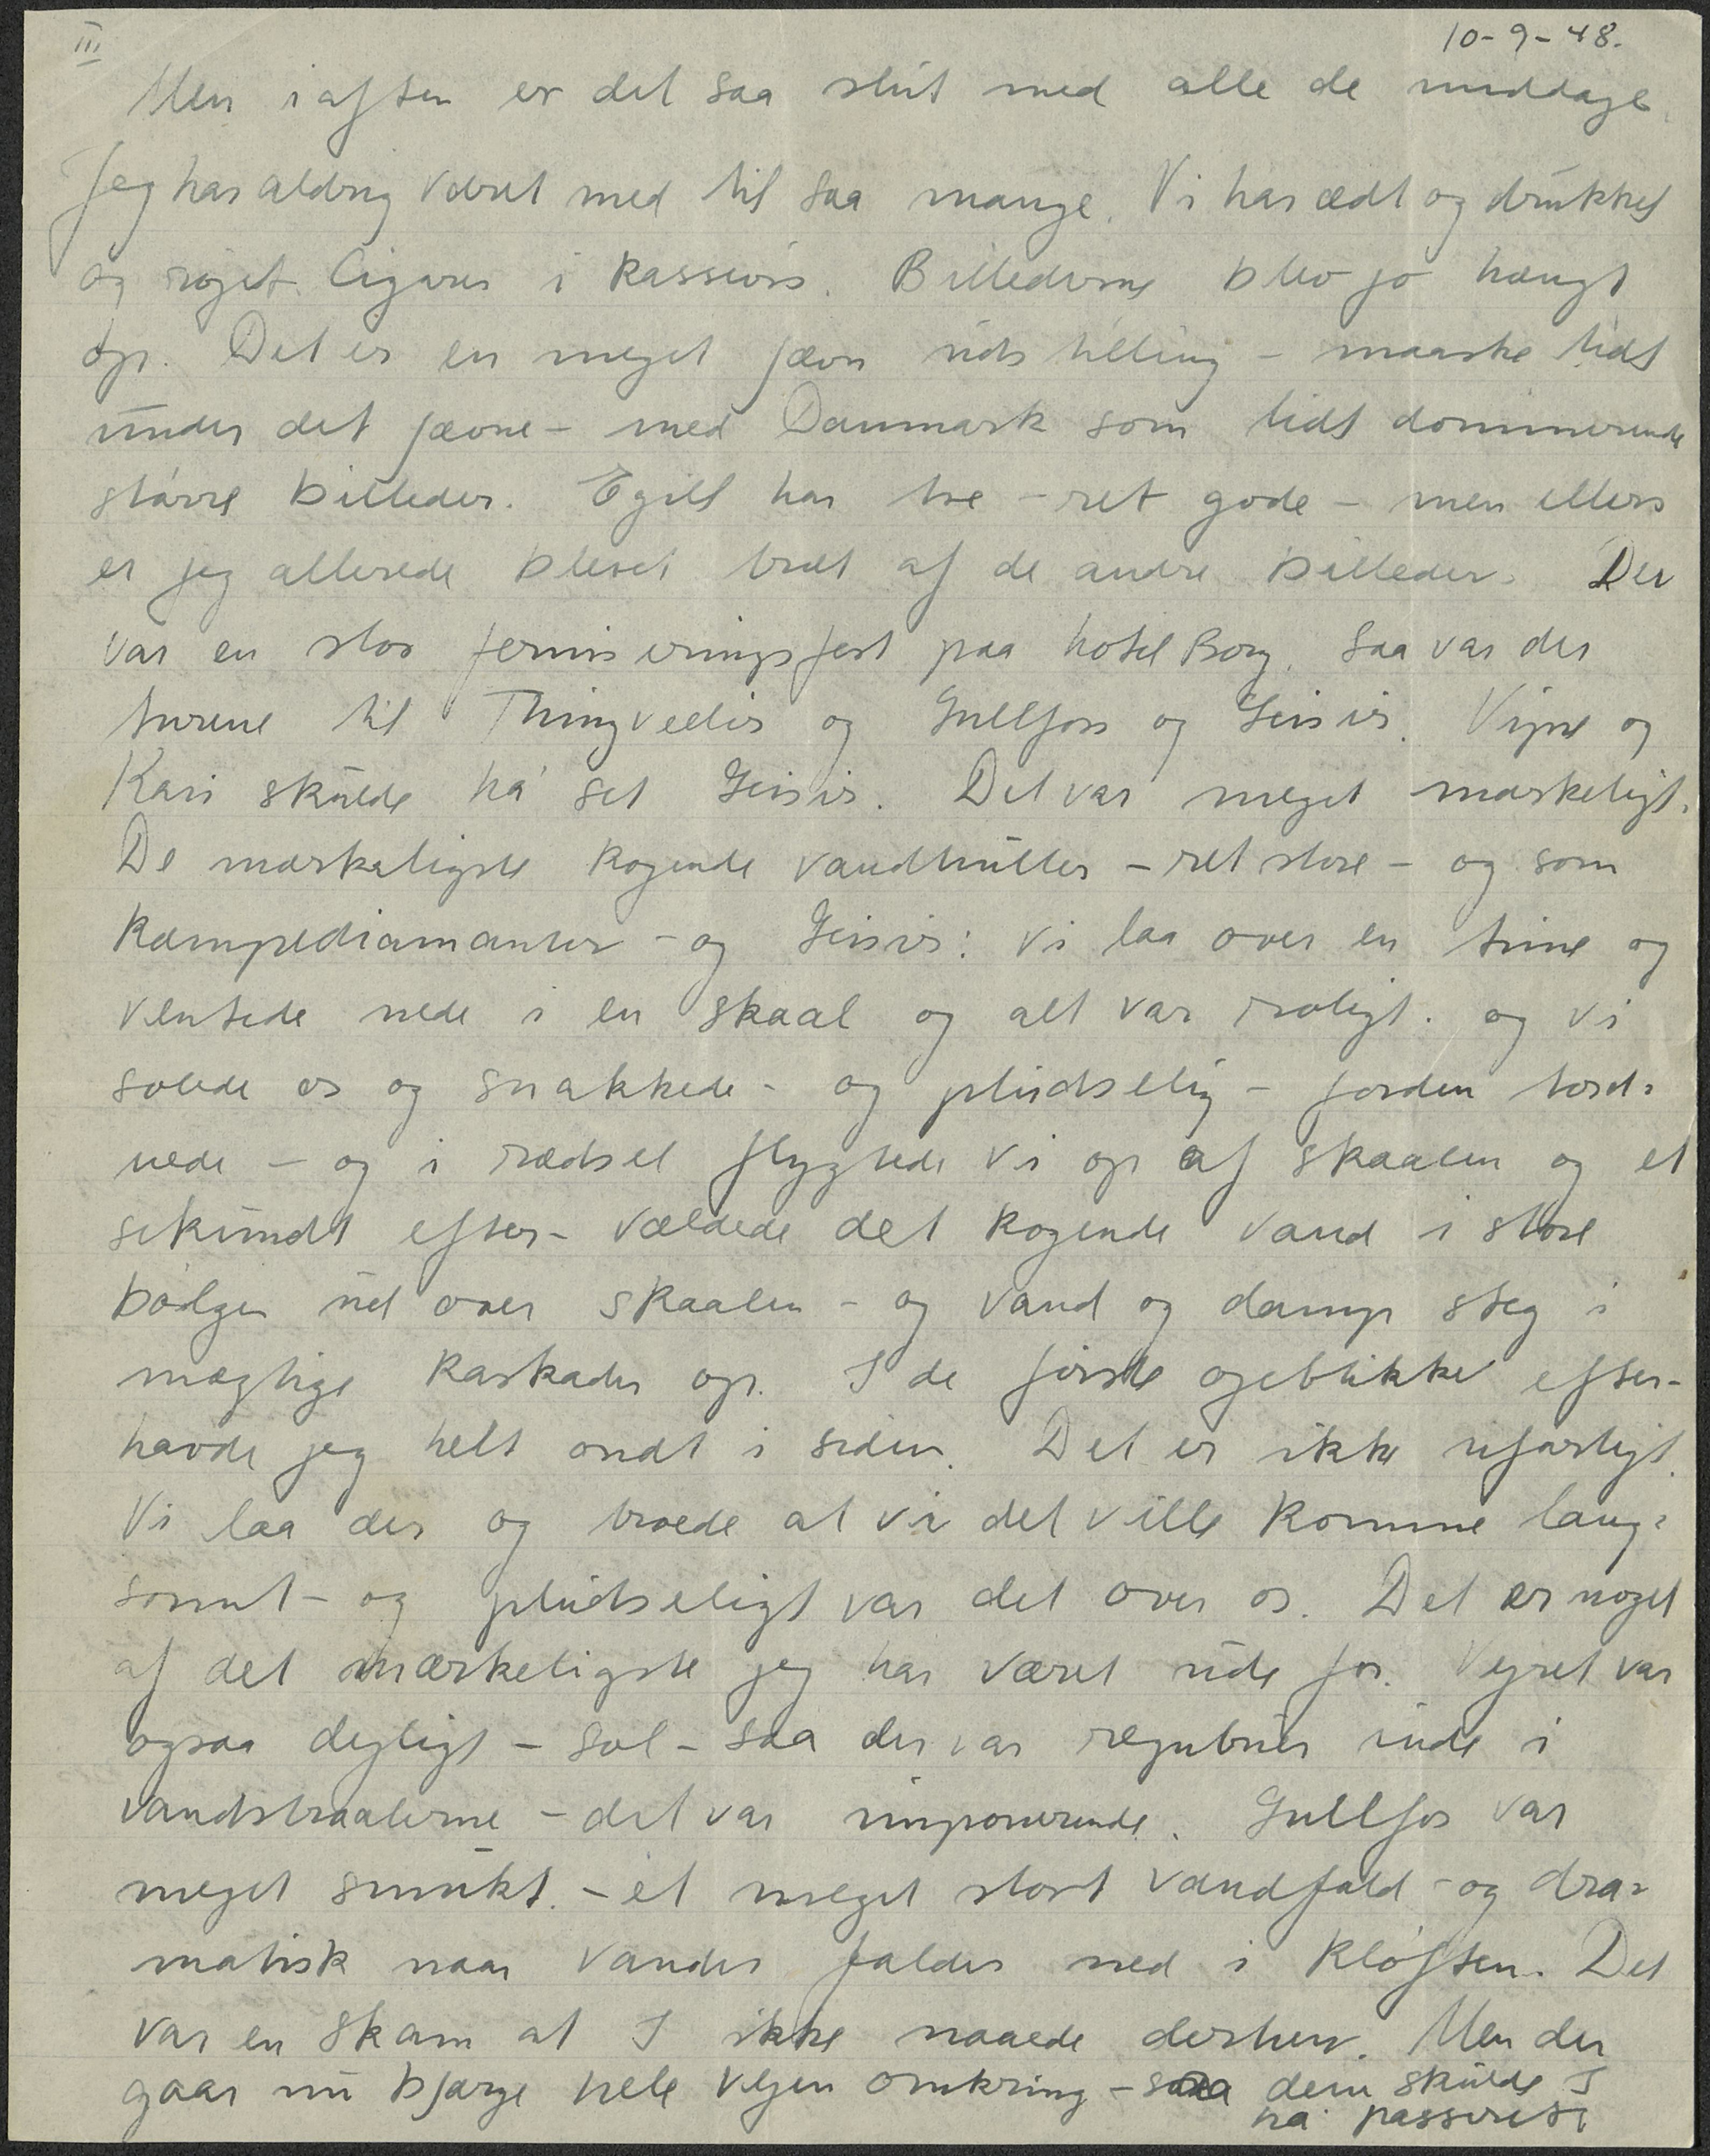 III
10-9-48.
Men i aften er det saa slut med alle de middage.
Jeg har aldrig været med til saa mange. Vi har ædt og drukket
og røget Cigarer i kassevis. Billederne blev jo hængt
op. Det er en meget jævn udstilling – maaske lidt
under det jævne – med Danmark som lidt dominerende
større billeder. Egill har tre – ret gode – men ellers
er jeg allerede blevet træt af de andre billeder. Der
var en stor ferniseringsfest paa hotel Borg. Saa var der
turene til Thingvellir og Gullfoss og Geisir. Vigne og
Kari skulde ha' set Geisir. Det var meget mærkeligt.
De mærkeligste kogende vandhuller – ret store – og som
kæmpediamanter – og Geisir: Vi laa over en time og
ventede nede i en skaal og alt var roligt. og vi
solede os og snakkede – og pludselig – jorden tord=
nede – og i rædsel flygtede vi op af skaalen og et
sekundt efter – vældede det kogende vand i store
bølger ud over skaalen – og vand og damp steg i
mægtige kaskader op. I de første øjeblikke efter –
havde jeg helt ondt i siden. Det er ikke ufarligt.
Vi laa der og troede at vi det ville komme lang=
somt – og pludseligt var det over os. Det er noget
af det mærkeligste jeg har været ude for. Vejret var
ogsaa dejligt – sol – saa der var regnbuer inde i
vandstraalerne – det var imponerende. Gullfos var
meget smukt. – et meget stort vandfald – og dra=
matisk naar vandet falder ned i kløften. Det
var en skam at I ikke naaede derhen. Men der
gaar nu bjærge hele vejen omkring – saa dem skulde I
ha' passeret.